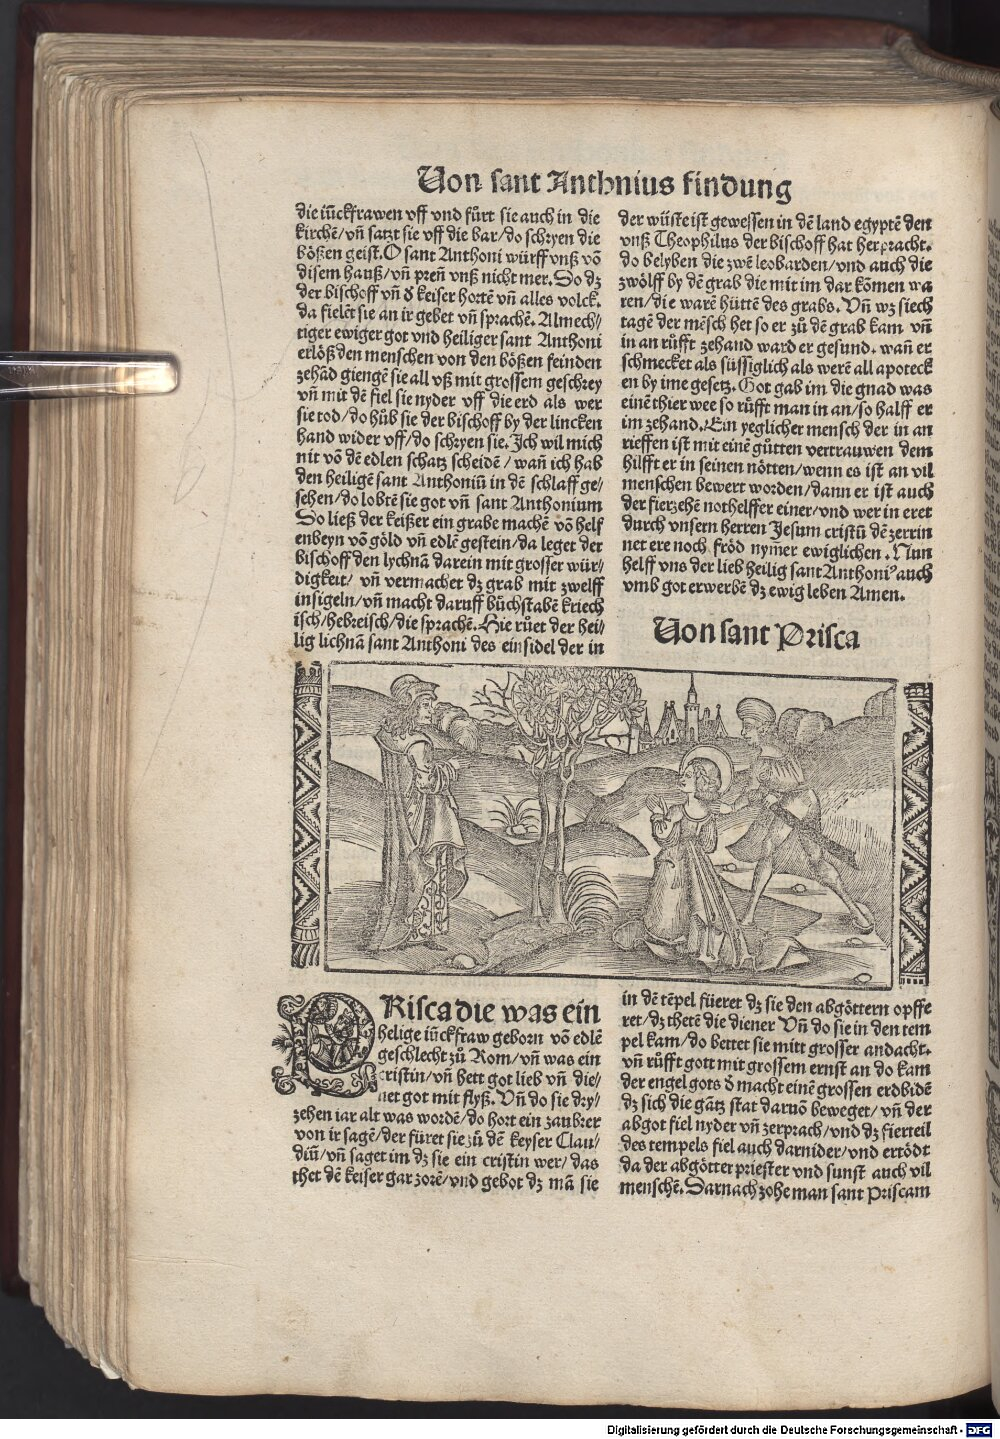 Von sant Anthnius findung
die iūckfrawen vff vnd fůrt sie auch in die
kirchē/vn̄ satzt sie vff die bar/do schryen die
bößen geist. O sant Anthoni würff vnß vō
disem hauß/vn̄ pren̄ vnß nicht mer. So dz
der bischoff vn̄ d̄ keiser hortē vn̄ alles volck.
da fielēt sie an ir gebet vn̄ sprachē. Almech/
tiger ewiger got vnd heiliger sant Anthoni
erlöß den menschen von den bößen feinden
zehād giengē sie all vß mit grossem geschrey
vn̄ mit dē fiel sie nyder vff die erd als wer
sie tod/do hůb sie der bischoff by der lincken
hand wider vff/do schryen sie. Ich wil mich
nit vō dē edlen schatz scheidē/wan̄ ich hab
den heiligē sant Anthoniū in dē schlaff ge/
sehen/do lobtē sie got vn̄ sant Anthonium
So ließ der keißer ein grabe machē vō helf
enbeyn vō göld vn̄ edlē gestein/da leget der
bischoff den lychnā darein mit grosser wür/
digkeit/ vn̄ vermachet dz grab mit zwelff
insigeln/vn̄ macht daruff bůchstabē kriech
isch/hebreisch/die sprachē. Hie růet der hei/
lig lichnā sant Anthoni des einsidel der in
der wüste ist gewessen in dē land egyptē den
vnß Theophilus der bischoff hat herpracht.
do belyben die zwē leobarden/vnd auch die
zwölff by dē grab die mit im dar kōmen wa
ren/die warē hüttē des grabs. Vn̄ wz siech
tagē der mēsch het so er zů dē grab kam vn̄
in an rüfft zehand ward er gesund. wan̄ er
schmecket als süssiglich als werē all apoteck
en by ime gesetz. Got gab im die gnad was
einē thier wee so růfft man in an/so halff er
im zehand. Ein yeglicher mensch der in an
rieffen ist mit einē gůtten vertrauwen dem
hilfft er in seinen nötten/wenn es ist an vil
menschen bewert worden/dann er ist auch
der fierzehē nothelffer einer/vnd wer in eret
durch vnsern herren Jesum cristū dē zerrin
net ere noch fröd nym̄er ewiglichen. Nun
helff vns der lieb heilig sant Anthoni⁹ auch
vmb got erwerbē dz ewig leben Amen.
Von sant Prisca
PRisca die was ein
helige iūckfraw geborn vō edlē
geschlecht zů Rom/vn̄ was ein
cristin/vn̄ hett got lieb vn̄ die/
net got mit flyß. Vn̄ do sie dry/
zehen iar alt was wordē/do hort ein zaubrer
von ir sagē/der füret sie zů dē keyser Clau/
diū/vn̄ saget im dz sie ein cristin wer/das
thet dē keiser gar zorē/vnd gebot dz mā sie
in dē tēpel füeret dz sie den abgöttern opffe
ret/dz thetē die diener Vn̄ do sie in den tem
pel kam/do bettet sie mitt grosser andacht.
vn̄ rüfft gott mit grossem ernst an do kam
der engel gots d̄ macht einē grossen erdbidē
dz sich die gātz stat daruō beweget/vn̄ der
abgot fiel nyder vn̄ zerprach/vnd dz fierteil
des tempels fiel auch darnider/vnd ertödt
da der abgötter priester vnd sunst auch vil
menschē. Darnach zohe man sant Priscam
Digitalisierung gefördert durch die Deutsche Forschungsgemeinschaft - DFG